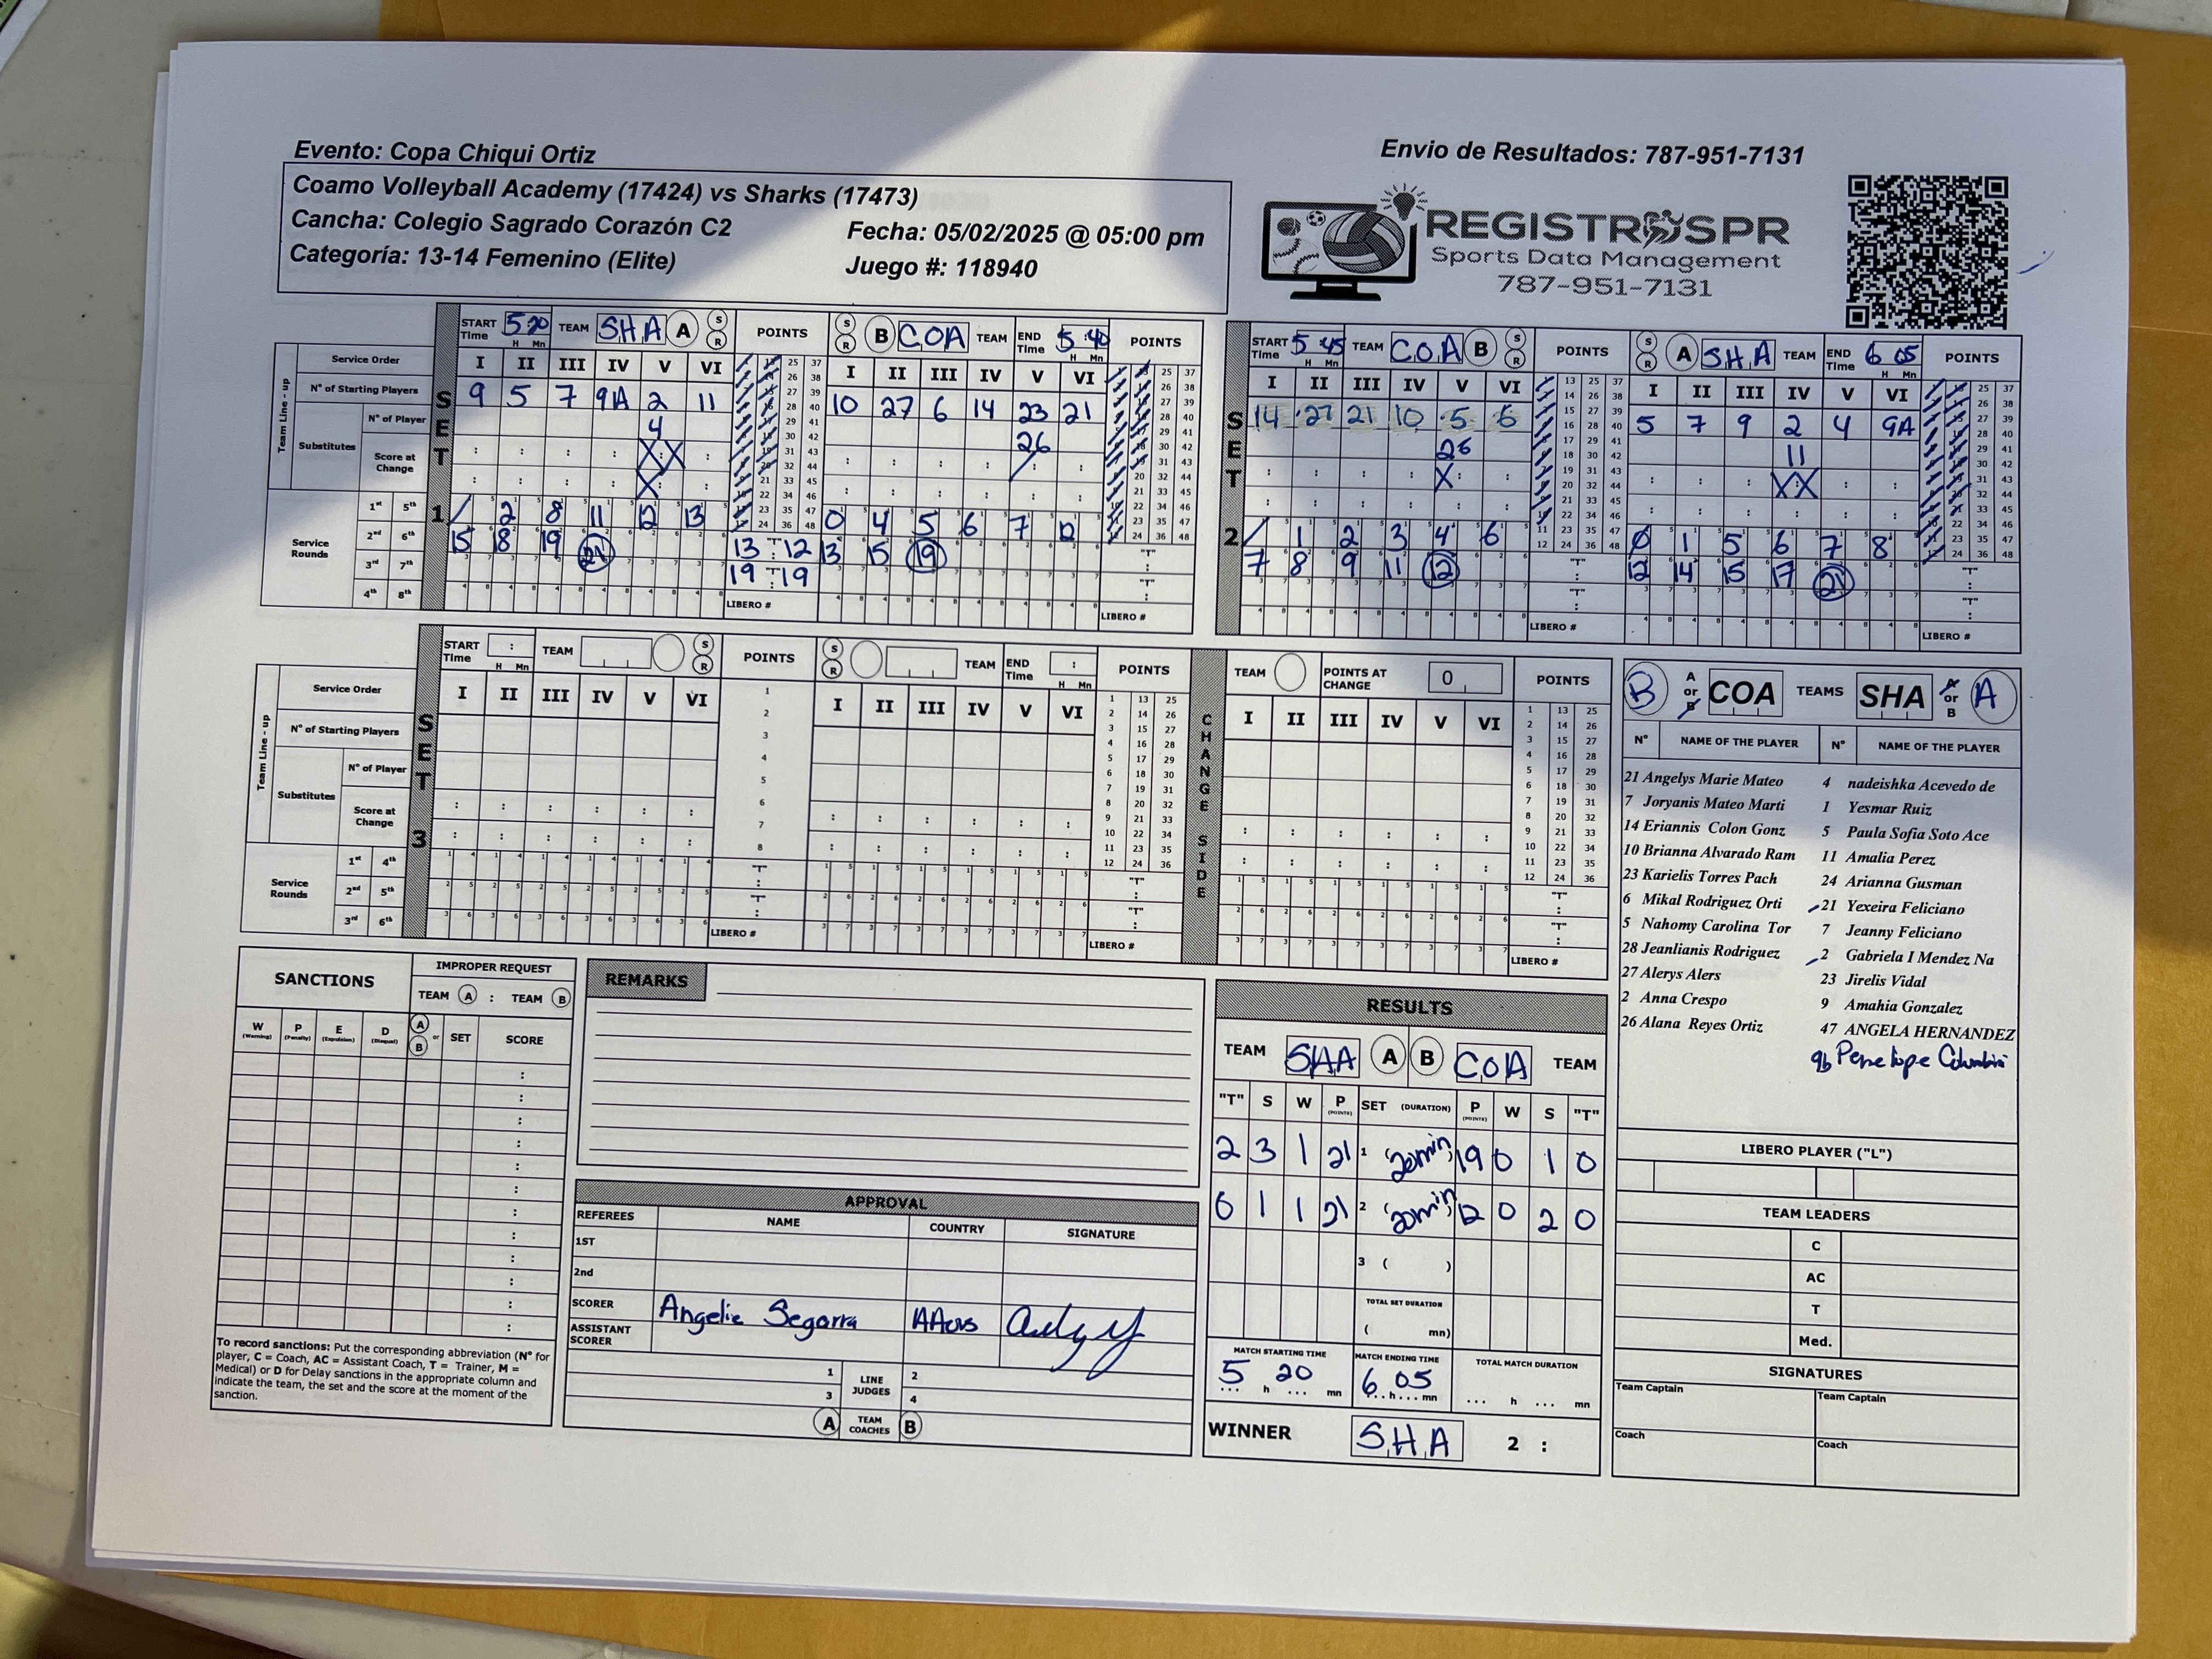 Evento: Copa Chiqui Ortiz
Envio de Resultados: 787-951-7131
Coamo Volleyball Academy (17424) vs Sharks (17473)
Cancha: Colegio Sagrado Corazón C2
Fecha: 05/02/2025 @ 05:00 pm
Categoría: 13-14 Femenino (Elite)
Juego #: 118940
REGISTROSPR
Sports Data Management
787-951-7131
SET 1
START Time 5:20 TEAM SHA A S R POINTS
S R B COA TEAM END Time 5:40 POINTS
Team Line - up
Service Order I II III IV V VI I II III IV V VI
N° of Starting Players 9 5 7 9A 2 11 10 27 6 14 23 21
Substitutes N° of Player 4 26
Score at Change
Service Rounds
1st 5th 2 8 11 12 13 0 4 5 6 7 12
2nd 6th 15 18 19 21 13 : 12 13 15 19
3rd 7th 19 : 19
4th 8th LIBERO # LIBERO #
SET 2
START Time 5:45 TEAM COA B S R POINTS
S R A SHA TEAM END Time 6 05 POINTS
I II III IV V VI I II III IV V VI
14 27 21 10 5 6 5 7 9 2 4 9A
26 11
1 2 3 4 6 0 1 5 6 7 8
7 8 9 11 12 12 14 15 17 21
LIBERO # LIBERO #
SET 3
START Time : H Mn TEAM S R POINTS
S R TEAM END Time : H Mn POINTS
CHANGE SIDE
TEAM POINTS AT CHANGE 0 POINTS
Team Line - up
Service Order I II III IV V VI I II III IV V VI I II III IV V VI
N° of Starting Players
Substitutes N° of Player
Score at Change
Service Rounds
1st 4th
2nd 5th
3rd 6th
LIBERO # LIBERO # LIBERO #
B A or B COA TEAMS SHA A or B A
N° NAME OF THE PLAYER N° NAME OF THE PLAYER
21 Angelys Marie Mateo 4 nadeishka Acevedo de
7 Joryanis Mateo Marti 1 Yesmar Ruiz
14 Eriannis Colon Gonz 5 Paula Sofia Soto Ace
10 Brianna Alvarado Ram 11 Amalia Perez
23 Karielis Torres Pach 24 Arianna Gusman
6 Mikal Rodriguez Orti 21 Yexeira Feliciano
5 Nahomy Carolina Tor 7 Jeanny Feliciano
28 Jeanlianis Rodriguez 2 Gabriela I Mendez Na
27 Alerys Alers 23 Jirelis Vidal
2 Anna Crespo 9 Amahia Gonzalez
26 Alana Reyes Ortiz 47 ANGELA HERNANDEZ
9b Penelope
LIBERO PLAYER ("L")
TEAM LEADERS
C
AC
T
Med.
SIGNATURES
Team Captain Team Captain
Coach Coach
SANCTIONS
IMPROPER REQUEST
TEAM A : TEAM B
W (Warning) P (Penalty) E (Expulsion) D (Disqual) A or B SET SCORE
To record sanctions: Put the corresponding abbreviation (N° for
player, C = Coach, AC = Assistant Coach, T = Trainer, M =
Medical) or D for Delay sanctions in the appropriate column and
indicate the team, the set and the score at the moment of the
sanction.
REMARKS
APPROVAL
REFEREES NAME COUNTRY SIGNATURE
1ST
2nd
SCORER Angelie Segarra
ASSISTANT SCORER
1 LINE JUDGES 2
3 4
A TEAM COACHES B
RESULTS
TEAM SHA A B COA TEAM
"T" S W P (POINTS) SET (DURATION) P (POINTS) W S "T"
2 3 1 21 1 (20min) 19 0 1 0
0 1 1 21 2 (20min) 12 0 2 0
3 ( )
TOTAL SET DURATION
( mn)
MATCH STARTING TIME MATCH ENDING TIME TOTAL MATCH DURATION
5 h 20 mn 6 h 05 mn ... h ... mn
WINNER SHA 2 :